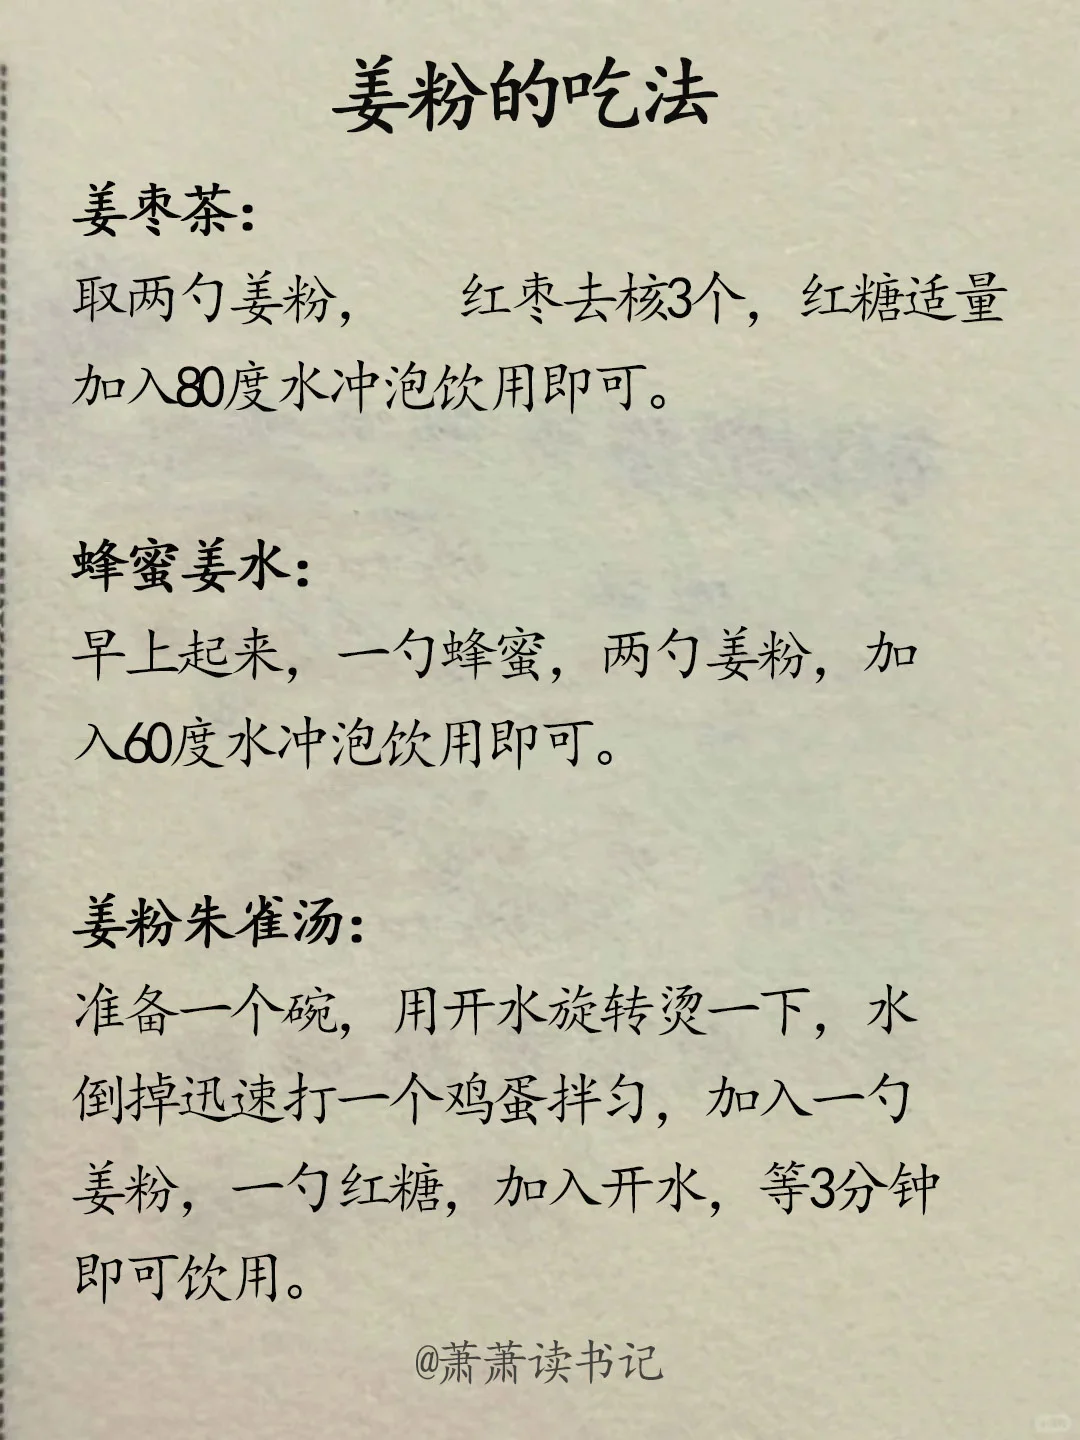 姜粉的吃法
姜枣茶：
取两勺姜粉， 红枣去核3个，红糖适量
加入80度水冲泡饮用即可。
蜂蜜姜水：
早上起来，一勺蜂蜜，两勺姜粉，加
入60度水冲泡饮用即可。
姜粉朱雀汤：
准备一个碗，用开水旋转烫一下，水
倒掉迅速打一个鸡蛋拌匀，加入一勺
姜粉，一勺红糖，加入开水，等3分钟
即可饮用。
@萧萧读书记